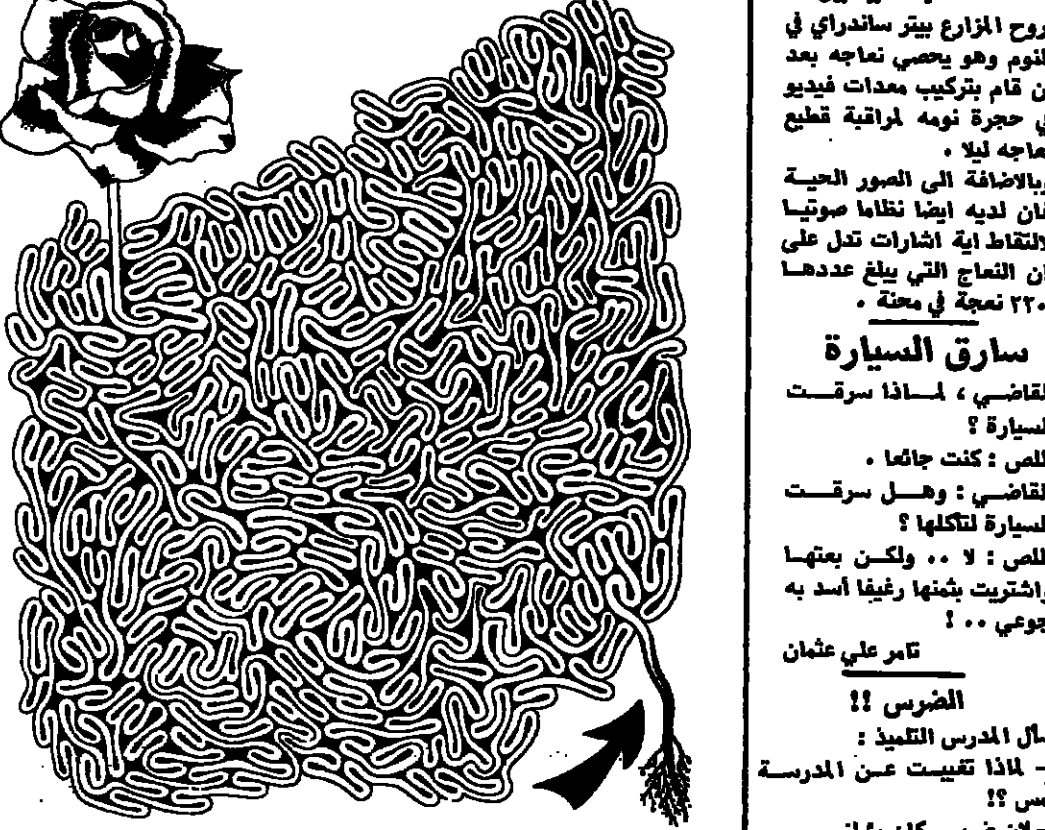 روح المزارع بيتر ساندراي في
النوم وهو يحصي نعاجه بعد
ن قام بتركيب معدات فيديو
ي حجرة نومه لمراقبة قطيع
عاجه ليلا .
وبالاضافة الى الصور الحيــة
فان لديه ايضا نظاما صوتيــا
لالتقاط اية اشارات تدل على
ان النعاج التي يبلغ عددهــا
٢٢٠ نعجة في محنة .
سارق السيارة
لقاضــي ، لمــاذا سرقــت
لسيارة ؟
للص : كنت جائعا .
لقاضــي : وهــل سرقــت
لسيارة لتأكلها ؟
للص : لا .. ولكــن بعتهــا
واشتريت بثمنها رغيفا أسد به
جوعي .. !
تامر علي عثمان
الضرس !!
سأل المدرس التلميذ :
- لماذا تغيبــت عــن المدرســة
مس ؟!